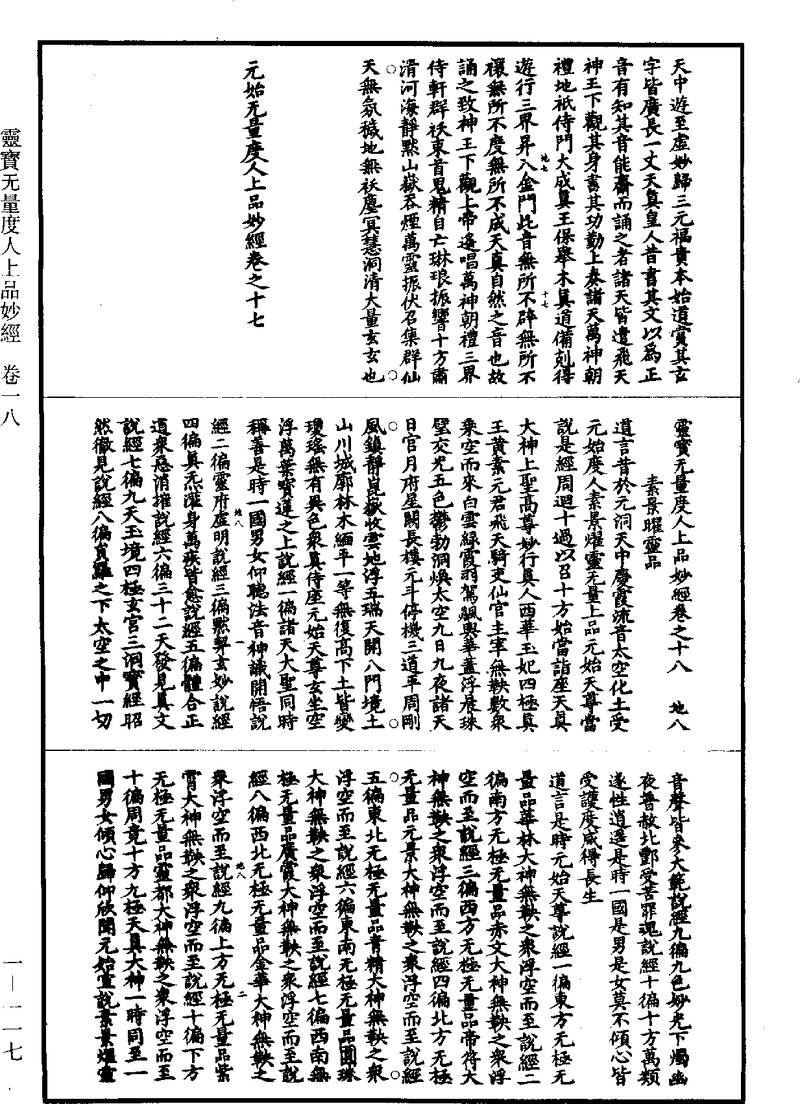 天中遊至虛妙歸三元福貴本始道賞其玄
字皆廣長一丈天真皇人昔書其文以為正
音有知其音能齋而誦之者諸天皆遣飛天
神王下觀其身書其功勤上奏諸天萬神朝
禮地祇侍門大成真王保舉木真道備剋得
遊行三界昇入金門此音無所不辟無所不
禳無所不度無所不成天真自然之音也故
誦之致神王下觀上帝遙唱萬神朝禮三界
侍軒群祅束首鬼精自亡琳琅振響十方肅
清河海靜默山嶽吞煙萬靈振伏召集群仙
天無氛穢地無祅塵冥慧洞清大量玄玄也
元始无量度人上品妙經卷之十七
地七
十七
靈寶无量度人上品妙經卷之十八
地八
素景曜靈品
道言昔於元洞天中慶霞流音太空化土受
元始度人素景燿靈无量上品元始天尊當
說是經周迴十過以召十方始當詣座天真
大神上聖高尊妙行真人西華玉妃四極真
王黃素元君飛天騎吏仙官主宰無鞅數衆
乘空而來白雲綠霞羽駕飆輿華蓋浮晨珠
璧交光五色鬱勃洞煥太空九日九夜諸天
日官月府星闕長樓元斗停機三道平周剛
風鎮靜艮嶽收雲地浮五瑞天開八門境土
山川城廓林木緬平一等無復高下土皆變
瓊瑤無有異色衆真侍座元始天尊玄坐空
浮萬葉寶蓮之上說經一徧諸天大聖同時
稱善是時一國男女仰聽法音神識開悟說
經二徧靈府虛明說經三徧默契玄妙說經
四徧真炁灌身萬疾皆愈說經五徧體合正
道衆惡消摧說經六徧三十二天發見真文
說經七徧九天玉境四極玄官三洞寶經昭
然徹見說經八徧育羅之下太空之中一切
地八
一
音聲皆來大範說經九徧九色妙光下燭幽
夜普赦北酆受苦罪魂說經十徧十方萬類
遂性逍遥是時一國是男是女莫不傾心皆
受護度咸得長生
道言是時元始天尊說經一徧東方无極无
量品華林大神無鞅之衆浮空而至說經二
徧南方无極无量品赤文大神無鞅之衆浮
空而至說經三徧西方无極无量品帝符大
神無鞅之衆浮空而至說經四徧北方无極
无量品元景大神無鞅之衆浮空而至說經
五徧東北无極无量品青精大神無鞅之衆
浮空而至說經六徧東南无極无量品圓珠
大神無鞅之衆浮空而至說經七徧西南無
極无量品廣霞大神無鞅之衆浮空而至說
經八徧西北无極无量品金華大神無鞅之
衆浮空而至說經九徧上方无極无量品紫
霄大神無鞅之衆浮空而至說經十徧下方
无極无量品靈都大神無鞅之衆浮空而至
十徧周竟十方九極天真大神一時同至一
國男女傾心歸仰欣聞元始宣說素景燿靈
地八
二
靈寶无量度人上品妙經 卷一八
一—一一七